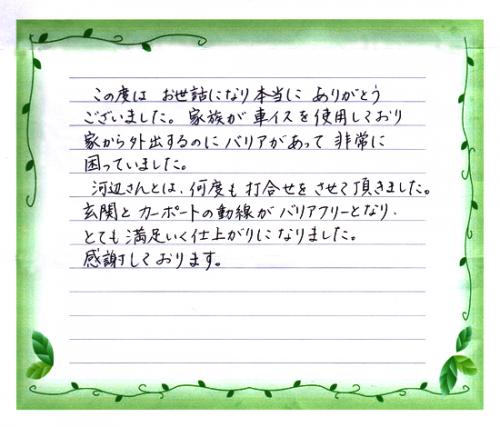 この度は お世話になり本当に ありがとう
ございました。家族が 車イスを使用しており
家から外出するのにバリアがあって 非常に
困っていました。
河辺さんとは、何度も 打合せをさせて頂きました。
玄関と カーポートの動線が バリアフリーとなり、
とても 満足いく仕上がりになりました。
感謝しております。